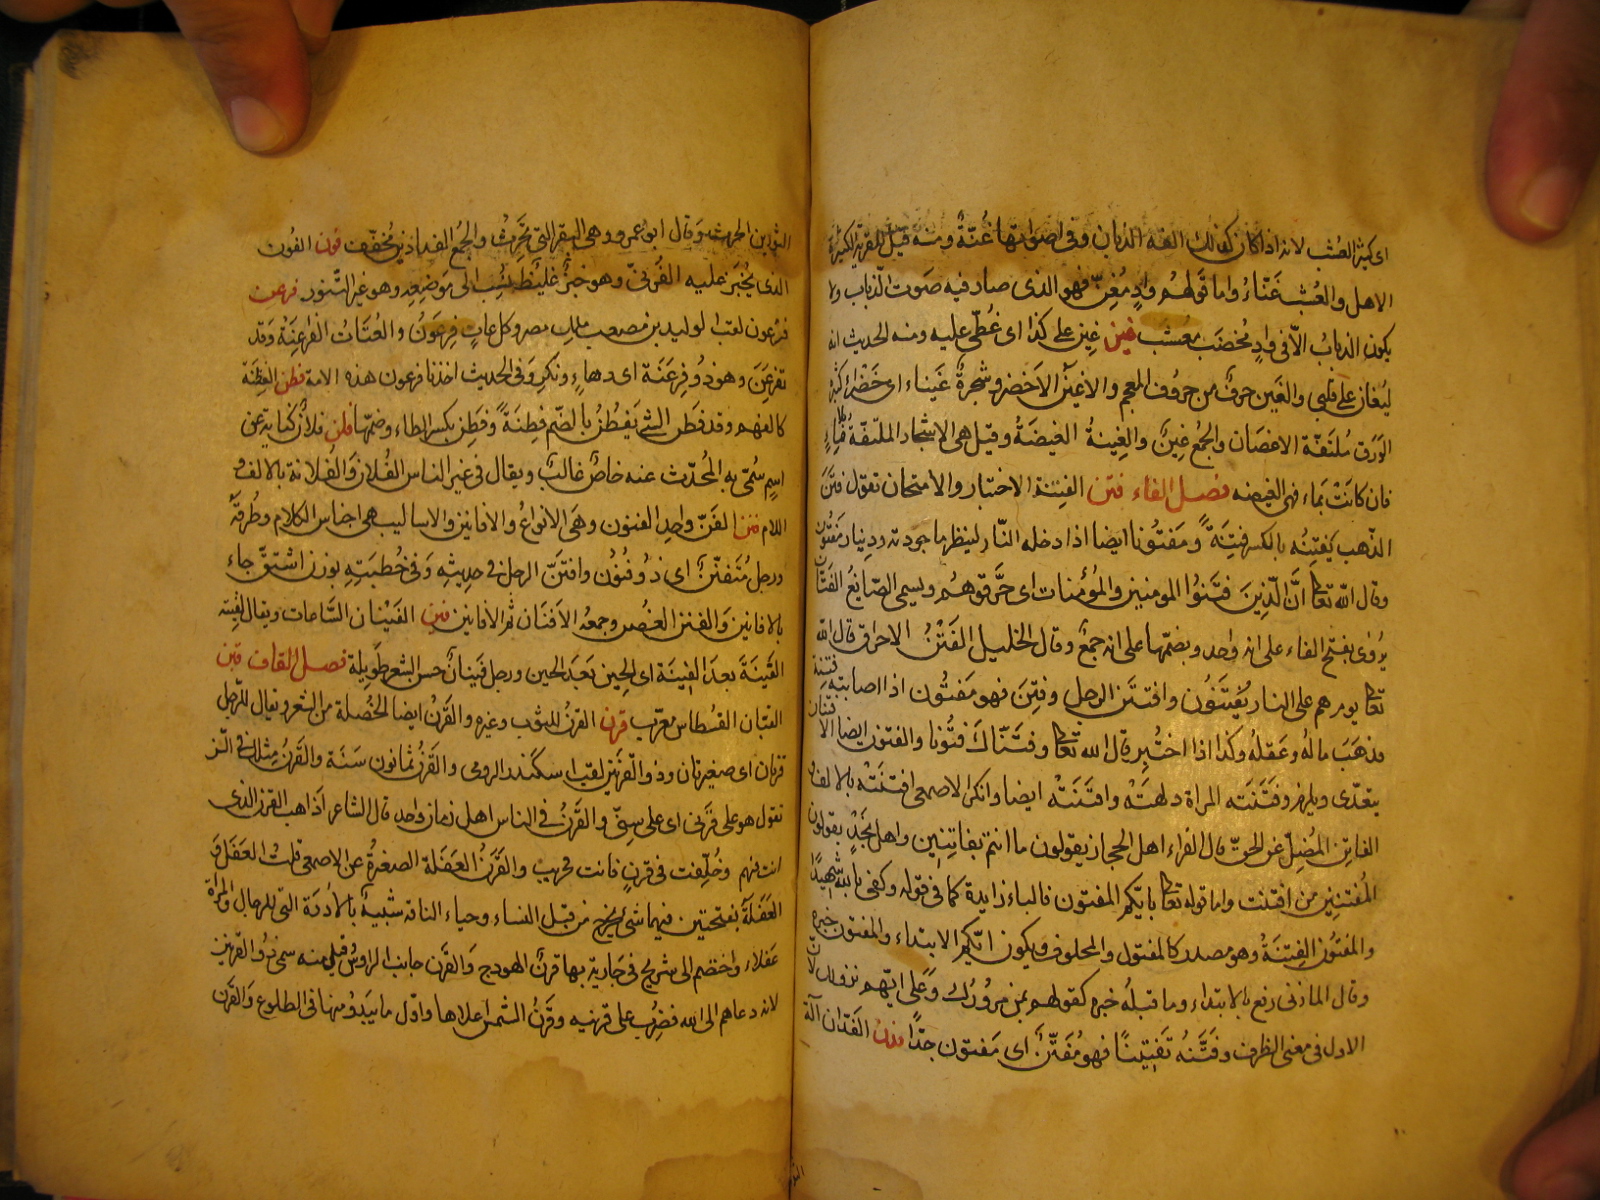 اى كثير العُشب لانه اذا كان كذلك الفه الذبان وفى اصواتها غُنّةٌ ومنه قيل للقرية الكثيرة
الاهل والعُشب غَنّاءُ واما قولهم وادٍ مُغِنّ فهو الذى صار فيه صَوت الذباب ولا
يكون الذباب الاّ فى وادٍ مُخصَب مُعشَب غين غِين على كذا اى غُطّى عليه ومنه الحديث انه
ليُغان على قلبى والغَين حرفٌ من حروف المعجم والاغيَن الاَخضر وشجرةٌ غَيناء اى خَضراء كثيرة
الوَرَق مُلتَفّة الاغصان والجمع غِينٌ والغِينةُ الغيضَةُ وقيل هى الاشجار الملتفّة بلا ماءٍ
فان كانَتْ بماء فهى الغيضه فصل الفاء فتن الفِتنة الاختبار والامتحان تقول فتَنَ
الذّهب يَفتِنُه بالكسر فِتنَةً ومَفتُونا ايضا اذا ادخله النّار لينظر ما جودته ودينار مَفتُون
وقال الله تعالى انَّ الّذِينَ فتَنُوا المومنين والمُؤمنات اى حَرَّقوهُم ويسمى الصّايغُ الفَتّان
يُروَى بفتح الفاء على انه واحد وبضمّها على انه جمعٌ وقال الخليل الفَتْنُ الاحراق قال الله
تعالى يوم هم على النار يُفتَنُون وافتتَن الرجل وفُتِنَ فهو مَفتُون اذا اصابته فتنة
فذهَبَ مالُه وعَقلُه وكذا اذا اختُبِر قال الله تعالى وفتَنّاكَ فتُونا والفتون ايضا الافتتان
يتعدّى ويلزم وفَتَنَته المراة دلّهَتْه وافتَنَتْه ايضا وانكر الاصمعى افتَنَتْه بالالف و
الفاتِن المُضِلّ عن الحقّ قال الفراء اهل الحجاز يقولون ما انتم بفاتِنِين واهل نَجْدٍ يقولون
المُفتنِين من افتَنت واما قوله تعالى بايّكم المفتون فالباء زايدة كما فى قوله وكفى بالله شهيدًا
والمفتُون الفِتنَةُ وهو مصدر كالمفتول والمحلوف ويكون ايّكم الابتداء والمفتون خبره
وقال المازنى رفع بالابتداء وما قبلهُ خبره كقولهم بمن مرورك وعَلَى ايّهم نزولك لانّ
الاول فى معنى الظرف وفتَّنهُ تَفتِينًا فهو مُفَتَّنٌ اى مَفتون جدًا فدن الفَدّان آلة
الثورين للحرث وقال ابو عمرو وهى البقر التى تَحرُث والجمع الفدادين مُخفّف فرن الفُرن
الذى يُخبَز عليه الفُرنىّ وهو خبزٌ غليظ نُسِب الى مَوضِعِه وهو غير التَّنور فرعن
فرعون لقب الوليد بن مُصعب ملك مصر وكل عاتٍ فِرعَونُ والعُتَات الفَراعِنَةُ وقد
تفَرعَنَ وهو ذو فِرعَنَة اى دهاءٍ ونكرٍ وفى الحديث اخذنا فرعون هذه الامة فطن الفِطنَة
كالفهم وقد فطَن الشئ يَفطُنُ بالضّم فطِنَةً وفَطِن بكسر الطاء وضمّها فلن فلانٌ كناية عن
اسمٍ سُمّى به المُحدَّث عنه خاصٌ غالبٌ ويقال فى غير الناس الفُلان والفُلانة بالالف و
اللام فنن الفنّ واحد الفنون وهى الانواعُ والافانين والاساليب هى اجناس الكلام وطُرقه
ورجل مُتَفنّنٌ اى ذُو فنُون وافتَنّ الرجل فى حديثِه وَفى خُطبَتِه بوزن اشتَقّ جاء
بالافانين والفنن الغُصن وجمعه الاَفنان ثم الافانين فين الفَيْنات السّاعات ويقال لقيته
الفَينَةَ بعدَ الفَينَة اى الحِين بَعدَ الحين ورجل فَينانٌ حسن الشَّعر طويله فصل القاف قبن
القبّان القسطاس معرّب قرن القرنُ للثور وغيره والقَرْن ايضا الخُصلة من الشعر ويقال للرّجل
قرنان اى ضفيرتان وذو القرنين لقب اسكندر الرومى والقَرنُ ثمانون سَنَة والقَرنُ مِثلك فى السّن
تقول هو على قرنى اى على سنّى والقَرنُ فى الناس اهل زمان واحد قال الشاعر اذا ذهب القرن الذى
انت فيهم وخُلّفت فى قرنٍ فانت غريب والقَرنُ العَفَلة الصغيرةُ عن الاصمعى قلت العَفَلُ وَ
العَفَلَةُ بفتحتين فيهما شئ يخرج من قبل النساء وحياء الناقة شبيهٌ بالأُدرَة التى للرجال والمراة
عَفلاء واختصم الى شريح فى جَارية بها قرنٌ الهودج والقَرن جانب الراس قيل منه سمى ذو القرنين
لانه دعاهم الى الله فضرب على قرنيه وقَرنُ الشمس اعلاها واوّل ما يَبدُو منها فى الطلوع وَالقَرن